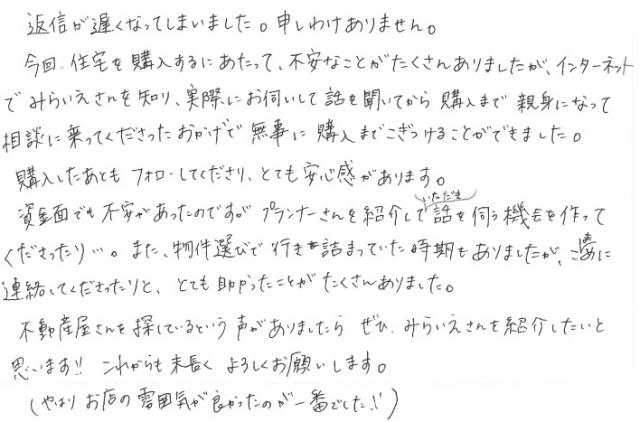 返信が遅くなってしまいました。申しわけありません。
今回、住宅を購入するにあたって、不安なことがたくさんありましたが、インターネット
でみらいえさんを知り、実際にお伺いして話を聞いてから購入まで親身になって
相談に乗ってくださったおかげで無事に購入までこぎつけることができました。
購入したあともフォローしてくださり、とても安心感があります。
資金面でも不安があったのですがプランナーさんを紹介していただき話を伺う機会を作って
くださったり…。また、物件選びで行き詰まっていた時期もありましたが、こまめに
連絡してくださったりと、とても助かったことがたくさんありました。
不動産屋さんを探しているという声がありましたらぜひ、みらいえさんを紹介したいと
思います!! これからも末長くよろしくお願いします。
(やはりお店の雰囲気が良かったのが一番でした!!)